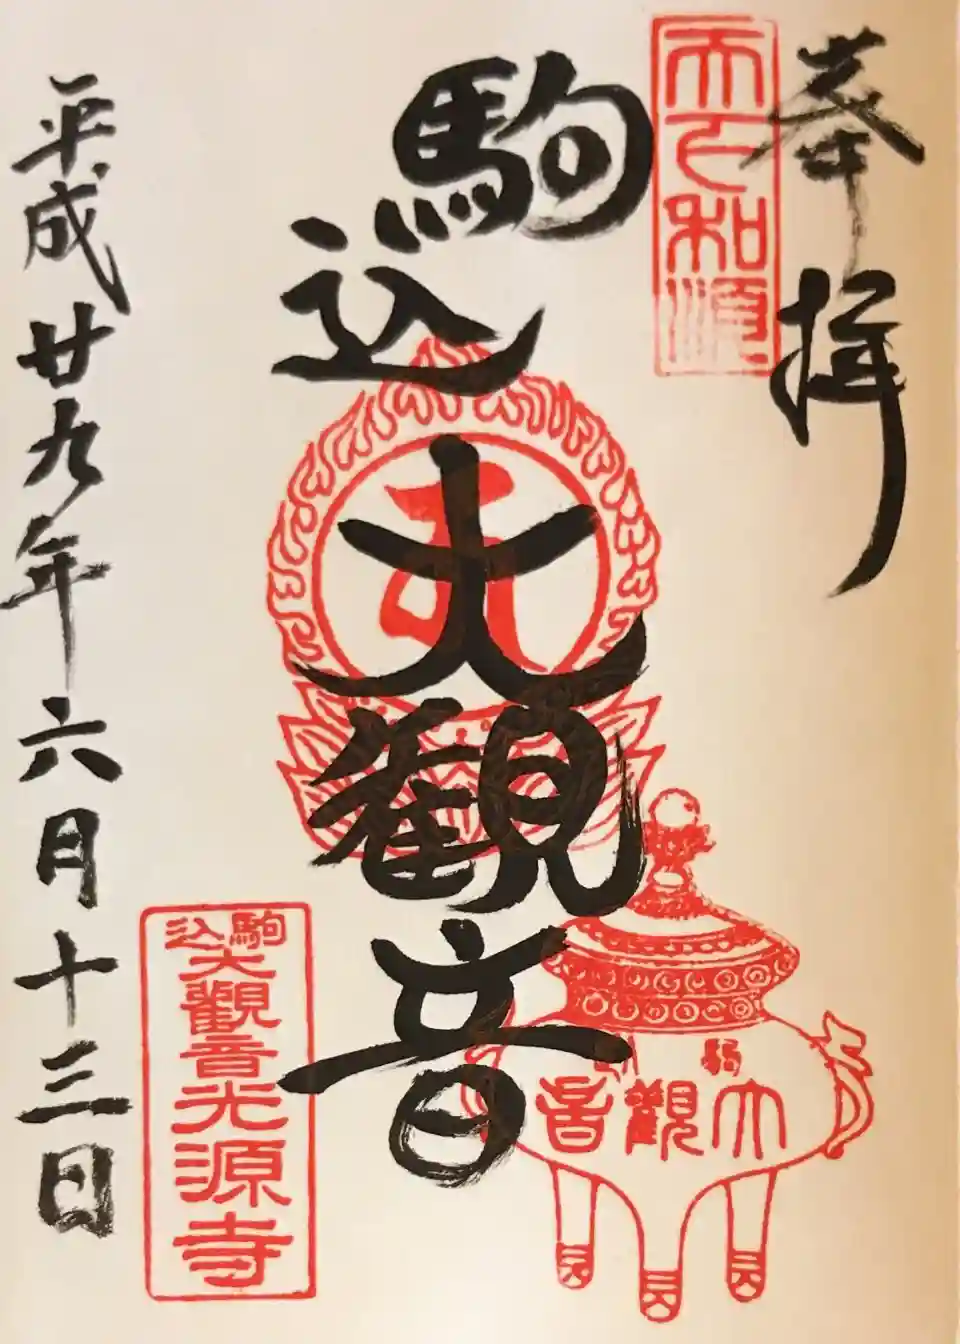 奉拝
天下和順
駒込大観音
大觀音
駒込
大觀音光源寺
平成廿九年六月十三日